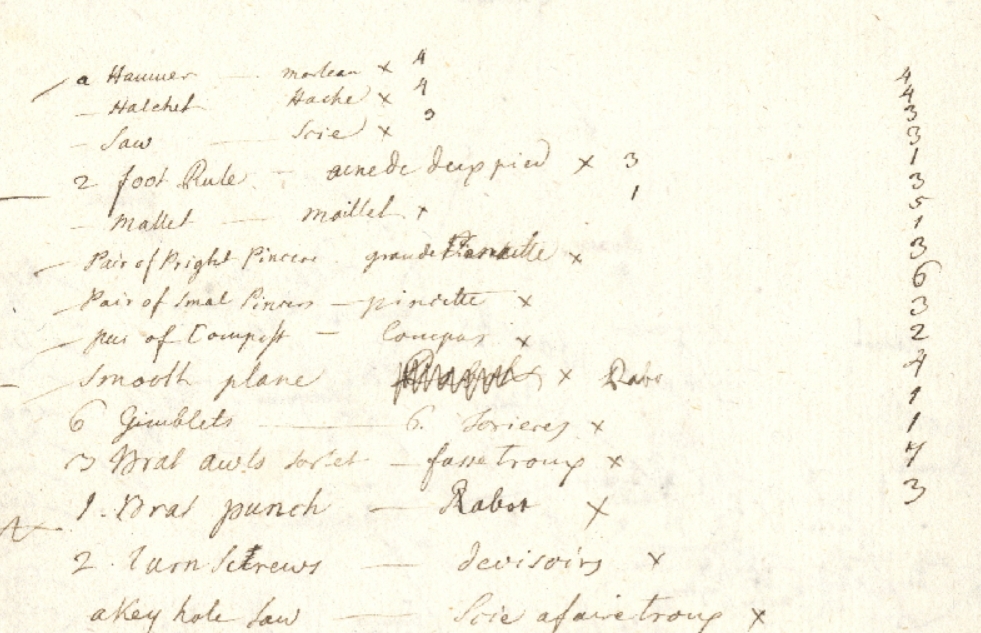 a Hammer — marteau × 4 4
— Hatchet Hache × 4 4
— Saw — Scie × 3 3
2 foot Rule — deux pied × 3 3
— mallet — maillet × 1 1
— Pair of Bright Pincers grande × 3
— Pair of Smal Pincers — pincette × 5
— pair of Compass — Compas × 1
Smooth plane × Rabo 3
6 Gimblets — 6. × 6
3 Brad awls — faire troup × 3
1. Brad punch — Rabot × 2
2. Turn Screws — devisoirs × 4
a Key hole Saw — Scie a faire troup × 1
1
4
3